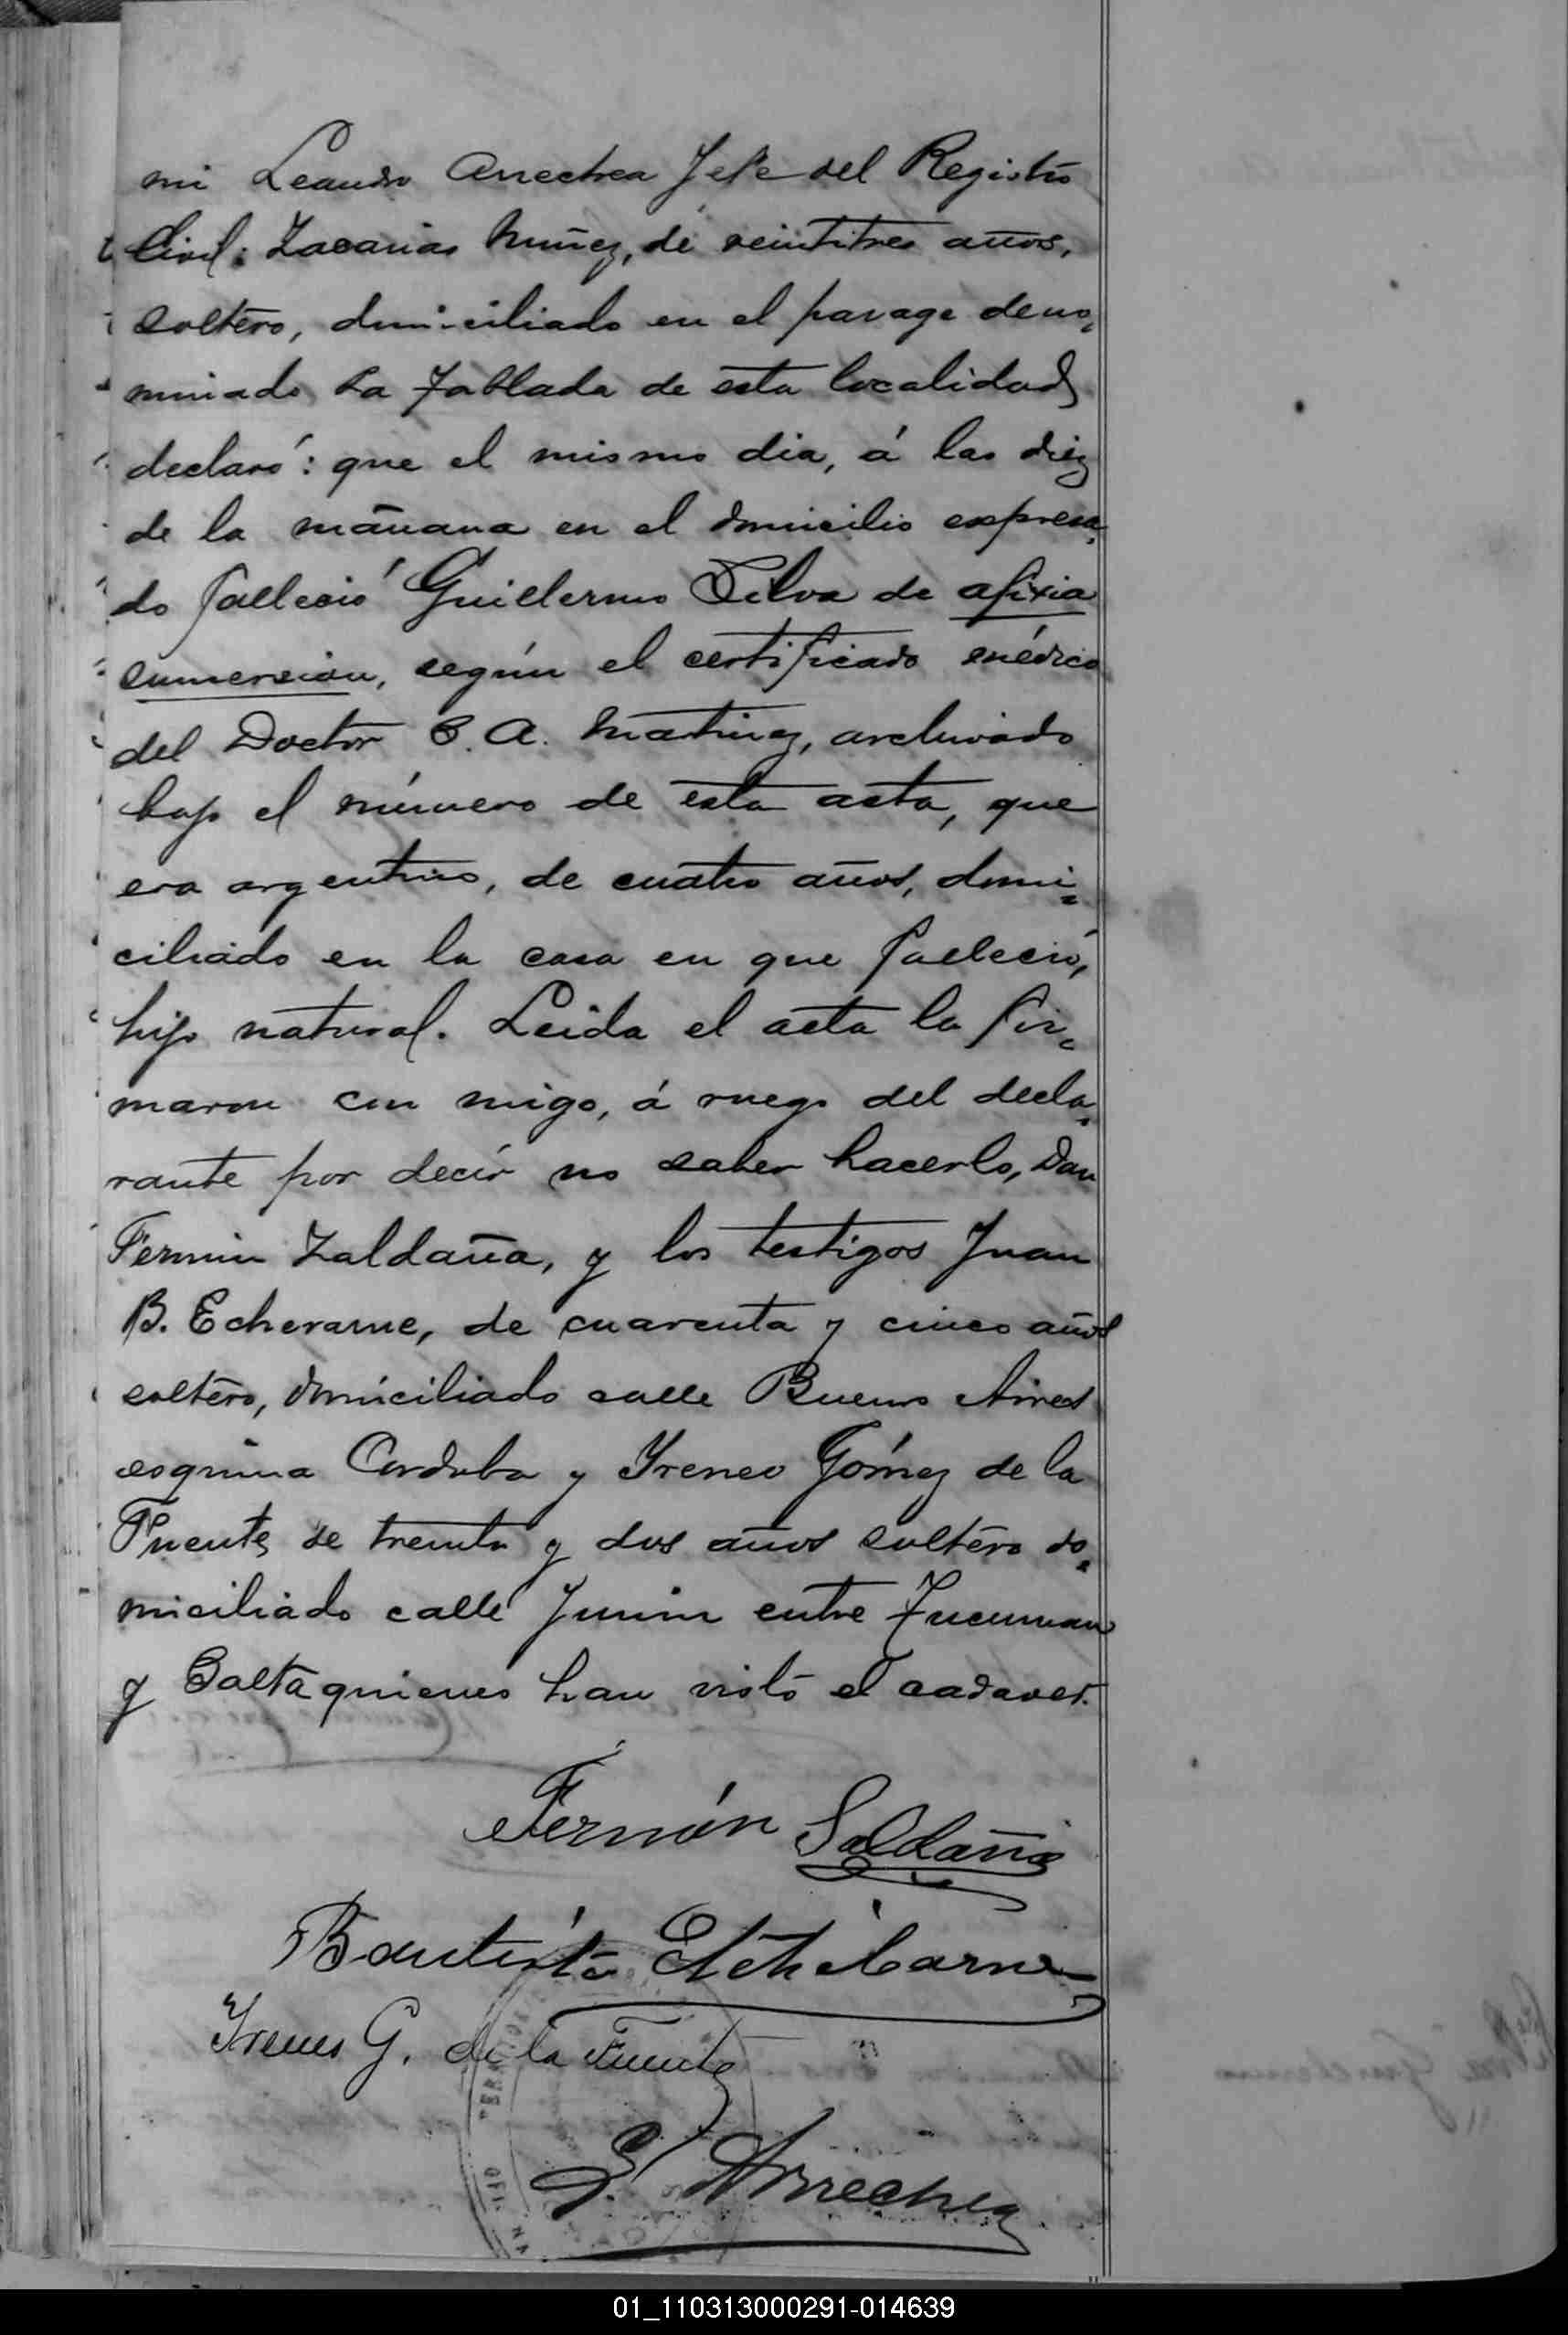 mi Leandro Arrechea Jefe del Registro
Civil: Zacarias Nuñez, de veintitres años,
soltero, domiciliado en el parage deno-
minado La Tablada de esta localidad
declaró: que el mismo dia, á las diez
de la mañana en el domicilio expresa-
do falleció Guillermo Silva de afixia
sumersion, según el certificado médico
del Doctor C. A. Martinez, archivado
bajo el número de esta acta, que
era argentino, de cuatro años, domi-
ciliado en la casa en que falleció,
hijo natural. Leida el acta la fir-
maron con migo, á ruego del decla-
rante por decir no saber hacerlo, Don
Fermin Zaldaña, y los testigos Juan
B. Echevarne, de cuarenta y cinco años
soltero, domiciliado calle Buenos Aires
esquina Cordoba y Yreneo Gómez de la
Fuente, de treinta y dos años soltero do-
miciliado calle Junin entre Tucuman
y Salta quienes han visto el cadaver.
Fermín Saldaña
Bautista Etchebarne
Yreneo G. de la Fuente
L. Arrechea
01_110313000291-014639